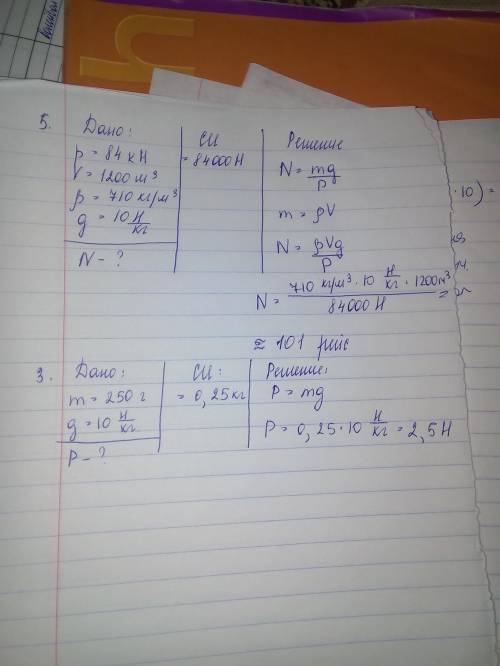 5.
Дано:
P = 84 кН
V = 1200 м³
ρ = 710 кг/м³
g = 10 Н/кг
N - ?
СИ
= 84000 Н
Решение
N = mg/P
m = ρV
N = ρVg/P
N = 710 кг/м³ · 10 Н/кг · 1200 м³ / 84000 Н ≈
≈ 101 рейс
· 10) =
3.
Дано:
m = 250 г
g = 10 Н/кг
P - ?
СИ:
= 0,25 кг
Решение:
P = mg
P = 0,25 · 10 Н/кг = 2,5 Н